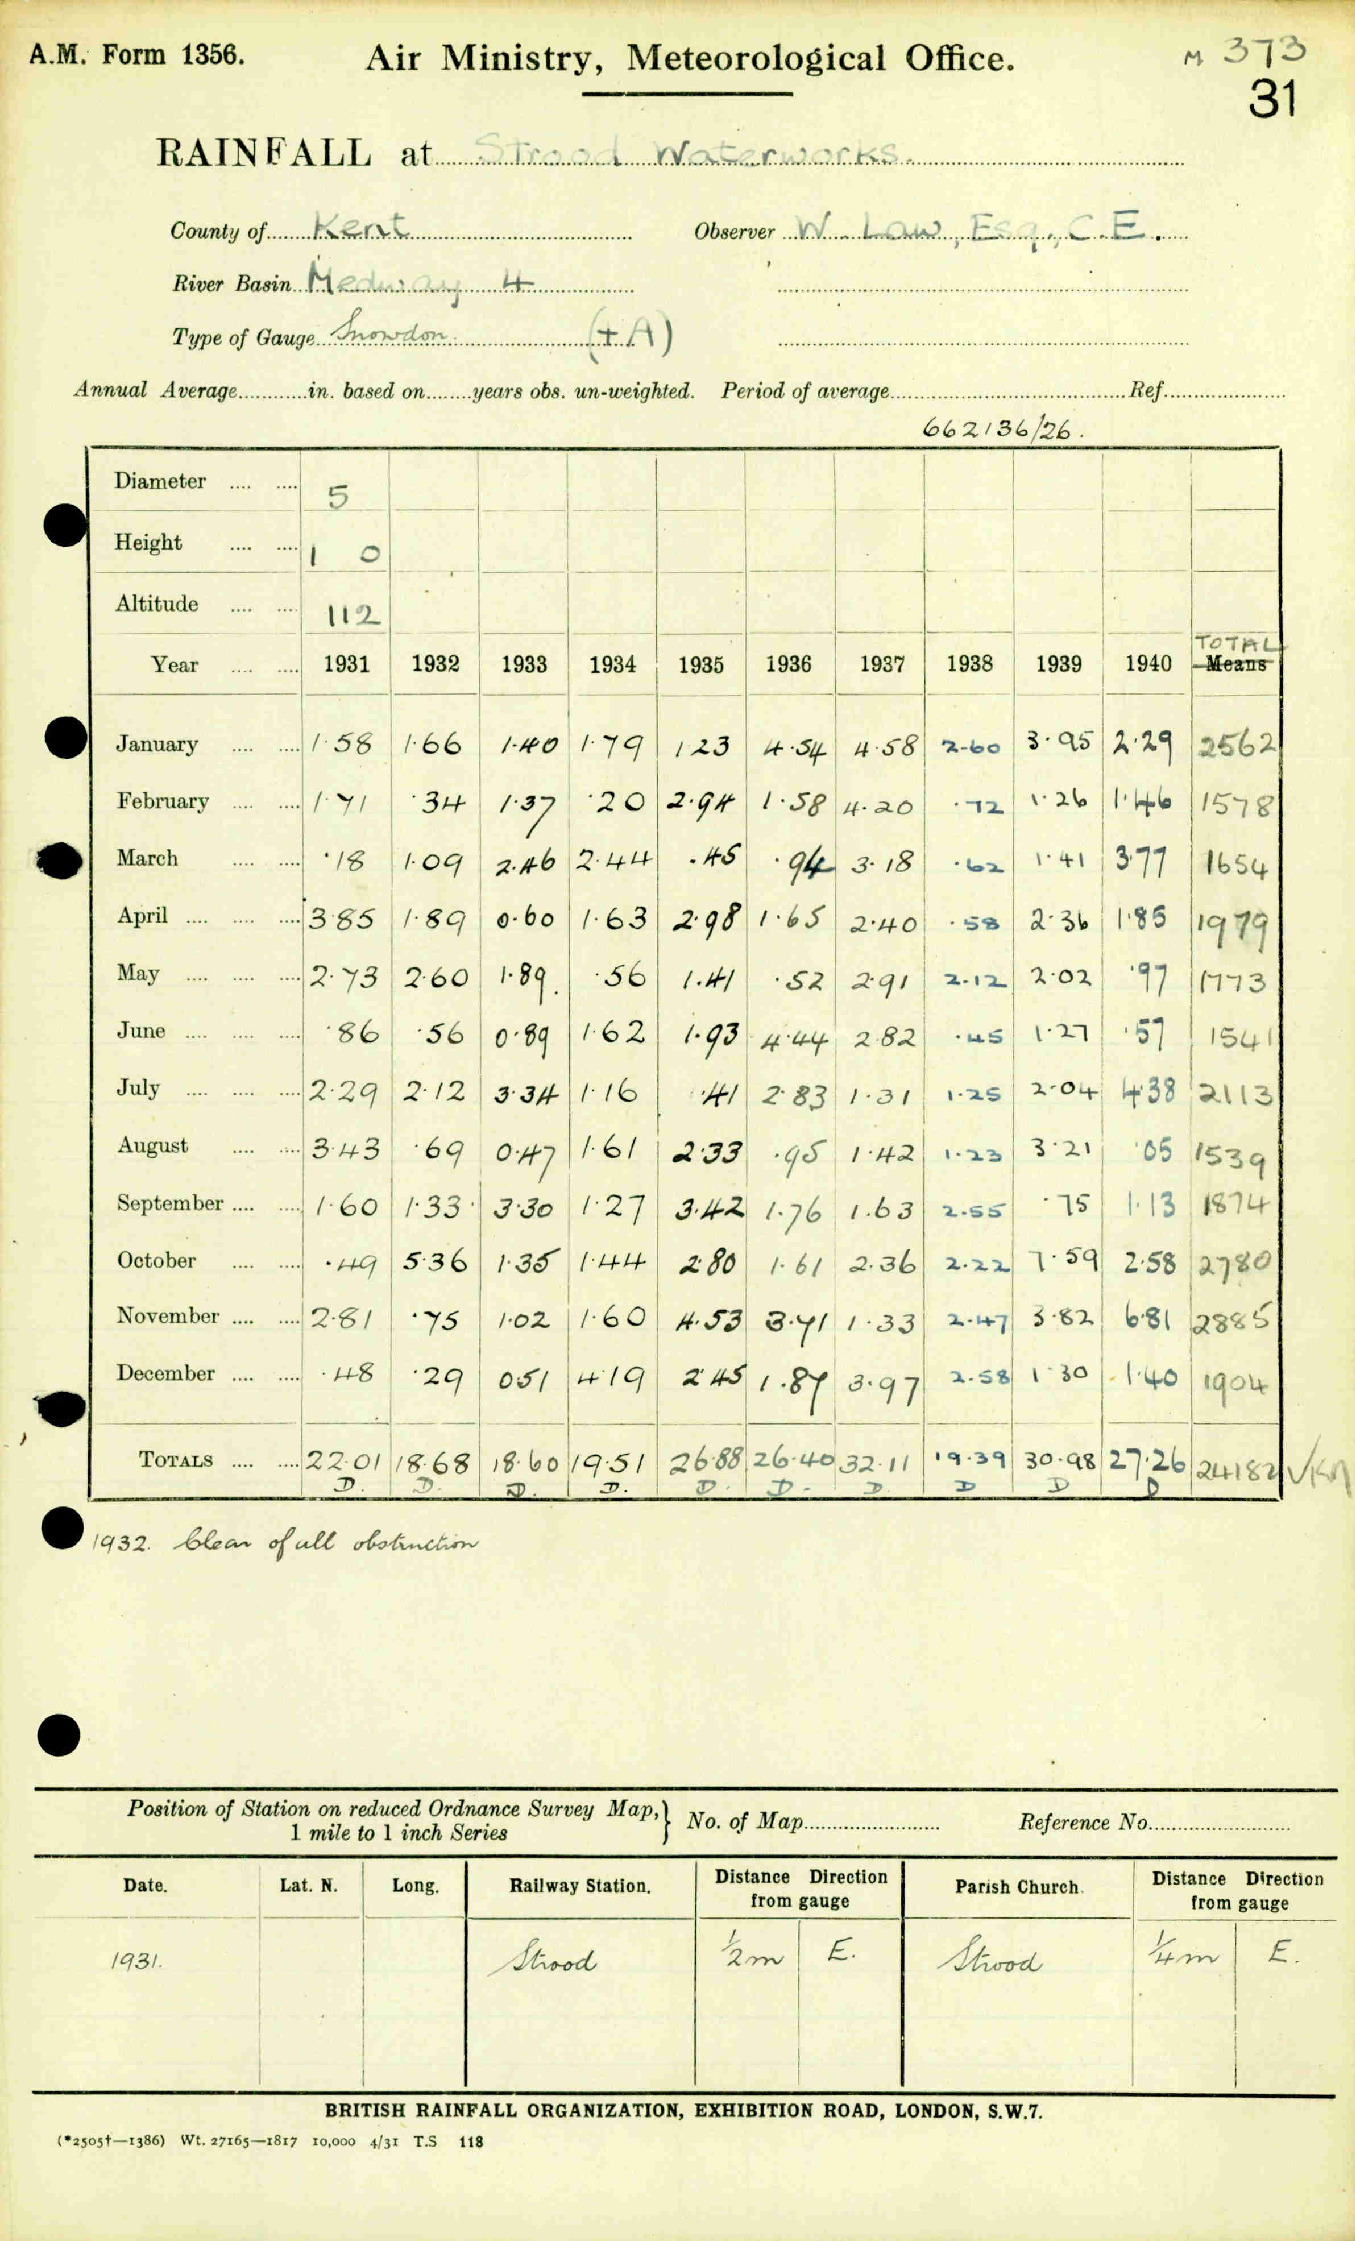 A.M. Form 1356.
Air Ministry, Meteorological Office.
M 373
31
RAINFALL at Strood Waterworks.
County of Kent Observer W. Law, Esq., C.E.
River Basin Medway 4
Type of Gauge Snowdon. (+A)
Annual Average in. based on years obs. un-weighted. Period of average Ref.
662136/26.
Diameter 5
Height 1 0
Altitude 112
TOTAL
Year 1931 1932 1933 1934 1935 1936 1937 1938 1939 1940 Means
January 1.58 1.66 1.40 1.79 1 23 4.54 4.58 2.60 3.95 2.29 2562
February 1.71 .34 1.37 .20 2.94 1.58 4.20 .72 1.26 1.46 1578
March .18 1.09 2.46 2.44 .45 .94 3.18 .62 1.41 3.77 1654
April 3.85 1.89 0.60 1.63 2.98 1.65 2.40 .58 2.36 1.85 1979
May 2.73 2.60 1.89. .56 1.41 .52 2.91 2.12 2.02 .97 1773
June .86 .56 0.89 1.62 1.93 4.44 2.82 .45 1.27 .57 1541
July 2.29 2.12 3.34 1.16 .41 2.83 1.31 1.25 2.04 4.38 2113
August 3.43 .69 0.47 1.61 2.33 .95 1.42 1.23 3.21 .05 1539
September 1.60 1.33 3.30 1.27 3.42 1.76 1.63 2.55 .75 1.13 1874
October .49 5.36 1.35 1.44 2.80 1.61 2.36 2.22 7.59 2.58 2780
November 2.81 .75 1.02 1.60 4.53 3.71 1.33 2.47 3.82 6.81 2885
December .48 .29 0.51 4.19 2.45 1.87 3.97 2.58 1.30 1.40 1904
TOTALS 22.01 18.68 18.60 19.51 26.88 26.40 32.11 19.39 30.98 27.26 24182
D. D. D. D. D. D. D D D D
1932. Clear of all obstruction
Position of Station on reduced Ordnance Survey Map,
1 mile to 1 inch Series
No. of Map Reference No.
Date. Lat. N. Long. Railway Station. Distance Direction from gauge Parish Church. Distance Direction from gauge
1931. Strood ½m E. Strood ¼m E.
BRITISH RAINFALL ORGANIZATION, EXHIBITION ROAD, LONDON, S.W.7.
(*2505†—1386) Wt. 27165—1817 10,000 4/31 T.S 118